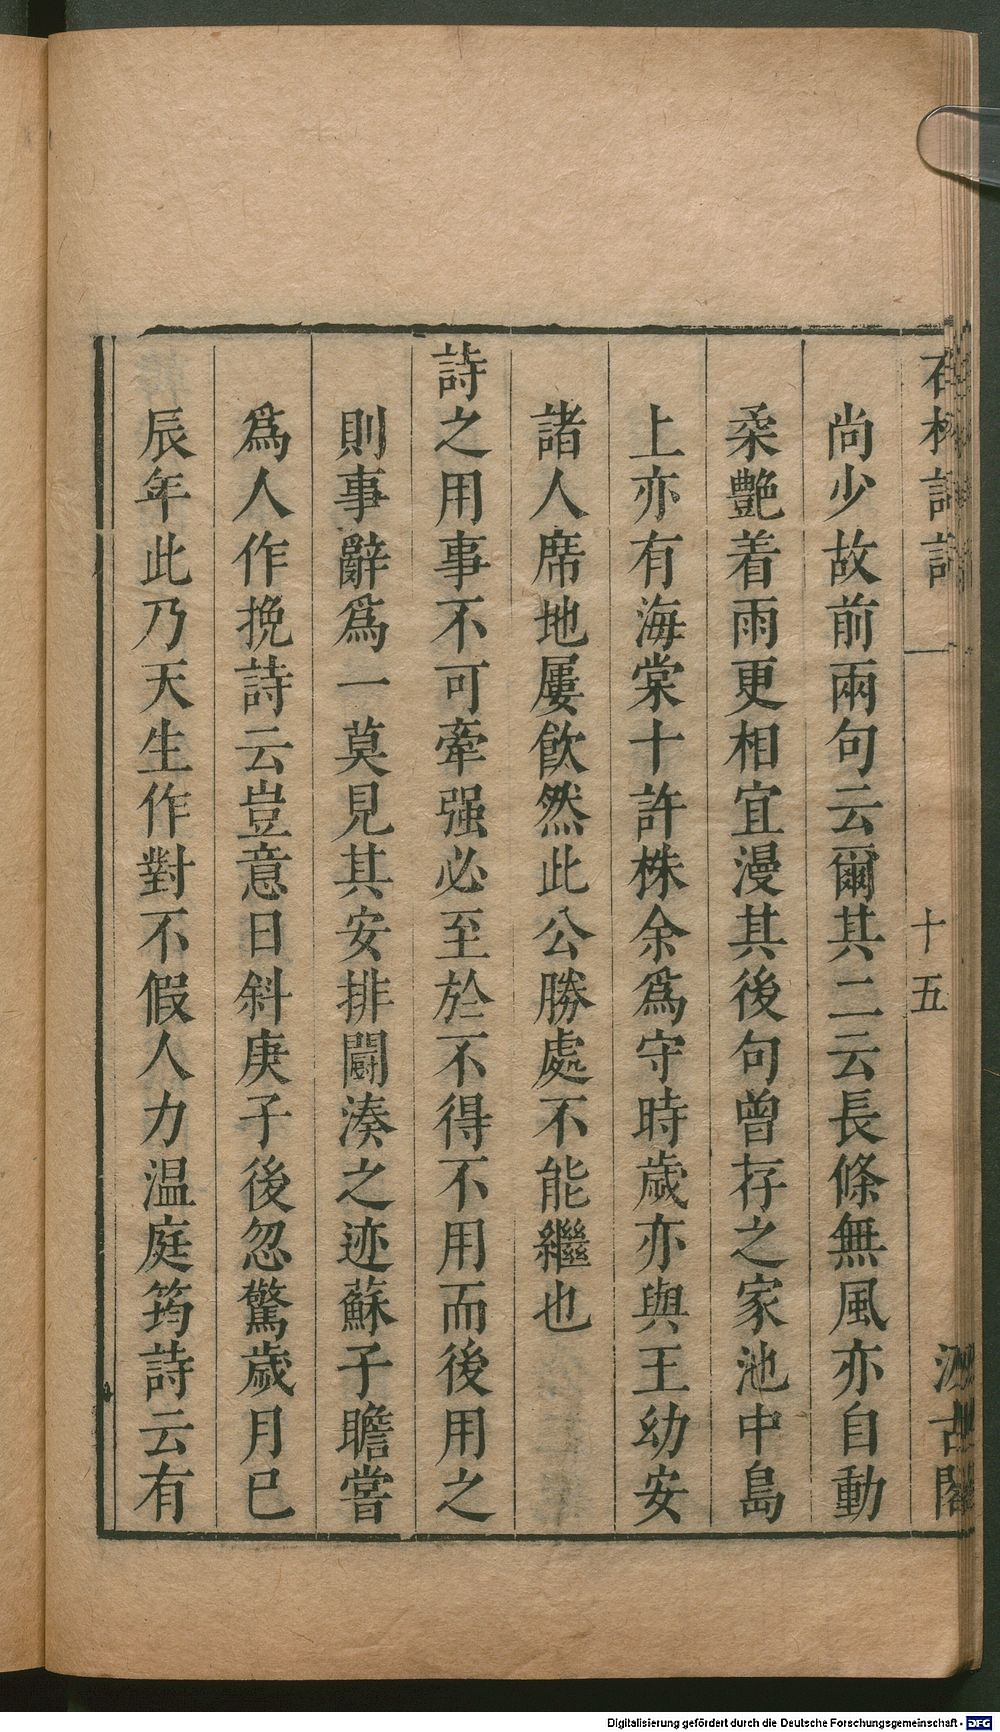 石林詩話 十五 汲古閣
尚少故前兩句云爾其二云長條無風亦自動
柔艷着雨更相宜漫其後句曾存之家池中島
上亦有海棠十許株余爲守時歲亦與王幼安
諸人席地屢飲然此公勝處不能繼也
詩之用事不可牽强必至於不得不用而後用之
則事辭爲一莫見其安排鬬湊之迹蘇子瞻嘗
爲人作挽詩云豈意日斜庚子後忽驚歲月巳
辰年此乃天生作對不假人力温庭筠詩云有
Digitalisierung gefördert durch die Deutsche Forschungsgemeinschaft - DFG